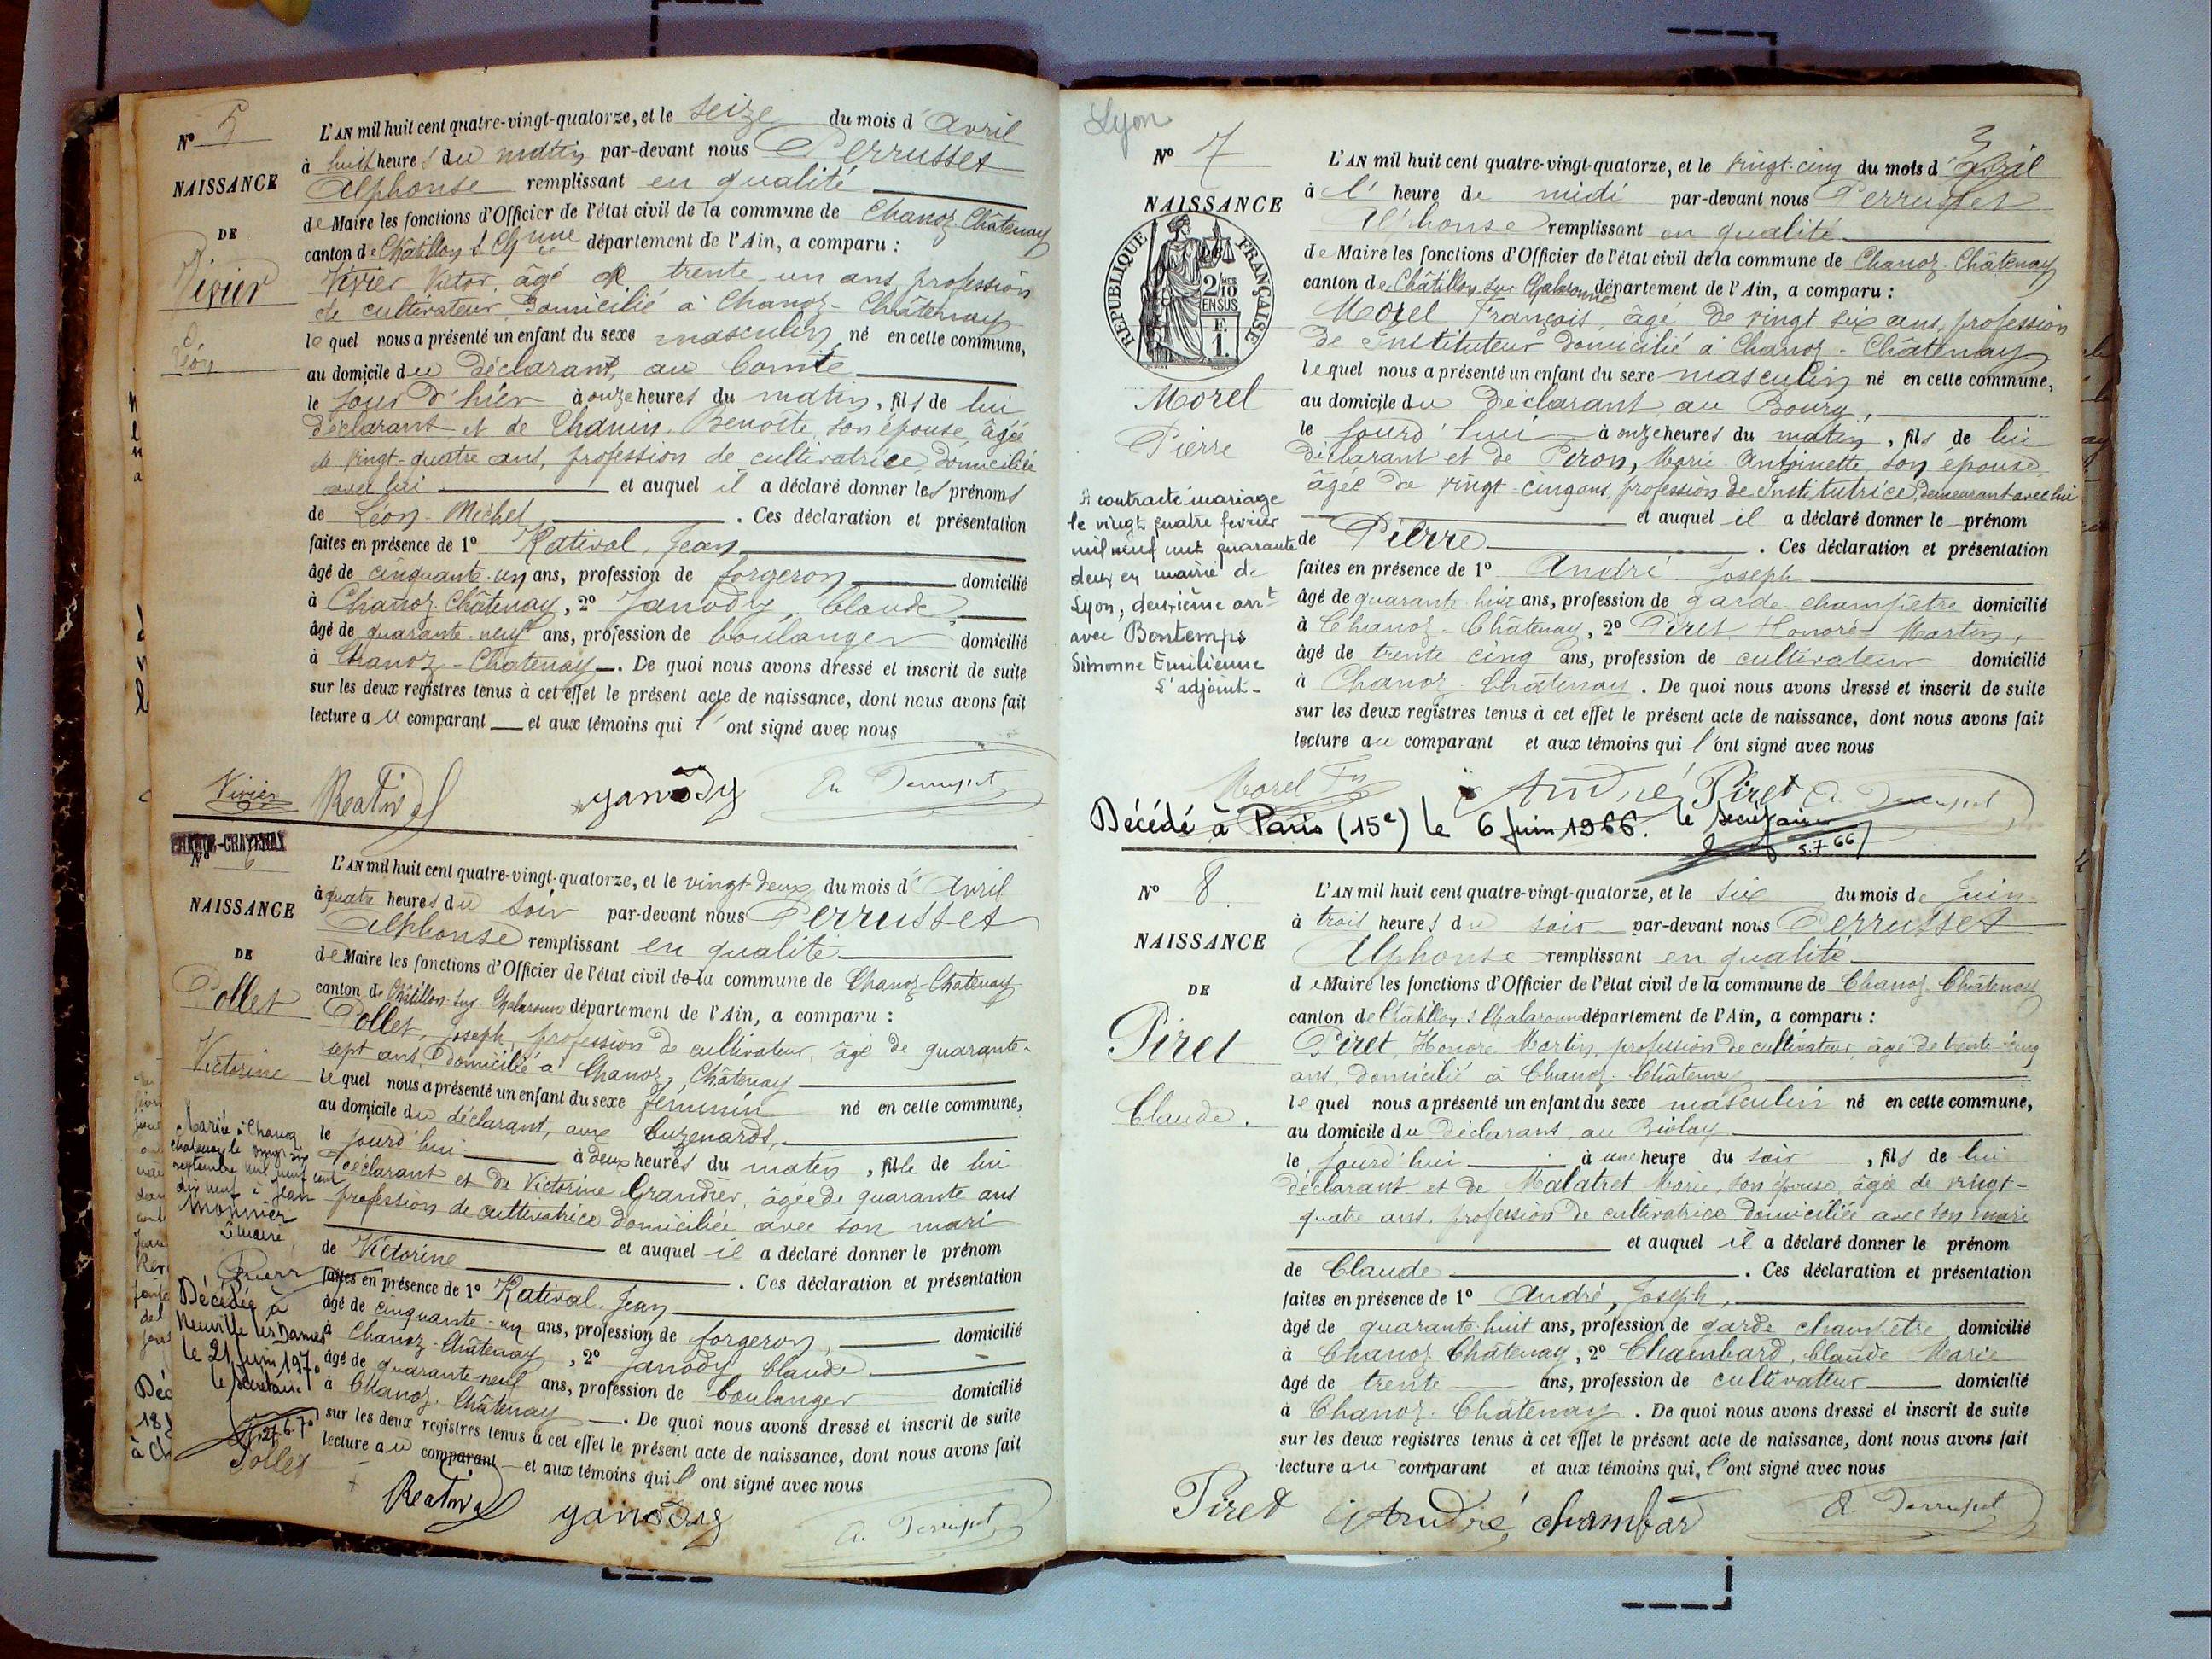 N° 5
NAISSANCE
DE
Vivier
Léon
L'AN mil huit cent quatre-vingt-quatorze, et le seize du mois d'Avril
à huit heures du matin par-devant nous Perrusset
Alphonse remplissant en qualité
de Maire les fonctions d'Officier de l'état civil de la commune de Chanoz-Châtenay
canton de Châtillon s Ch.nne département de l'Ain, a comparu :
Vivier Victor, âgé de trente-un ans, profession
de cultivateur, domicilié à Chanoz-Châtenay
lequel nous a présenté un enfant du sexe masculin né en cette commune,
au domicile du déclarant, au Comte
le jour d'hier à onze heures du matin, fils de lui
déclarant et de Chanin Benoîte, son épouse, âgée
de vingt-quatre ans, profession de cultivatrice, domiciliée
avec lui et auquel il a déclaré donner les prénoms
de Léon-Michel. Ces déclaration et présentation
faites en présence de 1° Rativel, Jean
âgé de cinquante-un ans, profession de forgeron domicilié
à Chanoz-Châtenay, 2° Janody, Claude
âgé de quarante-neuf ans, profession de boulanger domicilié
à Chanoz-Chatenay. De quoi nous avons dressé et inscrit de suite
sur les deux registres tenus à cet effet le présent acte de naissance, dont nous avons fait
lecture au comparant et aux témoins qui l'ont signé avec nous
Vivier Reativel yanody
CHANOZ-CHATENAY
N° 6
NAISSANCE
DE
Pollet
Victorine
Marié à Chanoz
chatenay le vingt six
septembre mil neuf cent
dix neuf à Jean
Monnier
Le maire
Décédée à
Neuville les Dames
le 21 Juin 1970
le Secrétaire
L'AN mil huit cent quatre-vingt-quatorze, et le vingt-deux du mois d'Avril
à quatre heures du soir par-devant nous Perrusset
Alphonse remplissant en qualité
de Maire les fonctions d'Officier de l'état civil de la commune de Chanoz-Chatenay
canton de Châtillon-sur-Chalaronne département de l'Ain, a comparu :
Pollet, Joseph, profession de cultivateur, âgé de quarante-
sept ans, domicilié à Chanoz, Châtenay
lequel nous a présenté un enfant du sexe féminin né en cette commune,
au domicile du déclarant, aux Cuzenards,
le jourd'hui à deux heures du matin, fille de lui
déclarant et de Victorine Grandier, âgée de quarante ans
profession de cultivatrice domiciliée avec son mari
et auquel il a déclaré donner le prénom
de Victorine. Ces déclaration et présentation
faites en présence de 1° Rativel Jean
âgé de cinquante-un ans, profession de forgeron, domicilié
à Chanoz-Châtenay, 2° Janody Claude
âgé de quarante-neuf ans, profession de boulanger domicilié
à Chanoz-Châtenay. De quoi nous avons dressé et inscrit de suite
sur les deux registres tenus à cet effet le présent acte de naissance, dont nous avons fait
lecture au comparant et aux témoins qui l'ont signé avec nous
Pollet Reativel yanody
Lyon
3
N° 7
NAISSANCE
DE
REPUBLIQUE FRANÇAISE
2/10
EN SUS
F.
1.
Morel
Pierre
A contracté mariage
le vingt quatre février
mil neuf cent quarante
deux en mairie de
Lyon, deuxième arrt
avec Bontemps
Simonne Emilienne
L'adjoint
L'AN mil huit cent quatre-vingt-quatorze, et le vingt-cinq du mois d'avril
à l'heure de midi par-devant nous Perrusset
Alphonse remplissant en qualité
de Maire les fonctions d'Officier de l'état civil de la commune de Chanoz-Châtenay
canton de Châtillon sur Chalaronne département de l'Ain, a comparu :
Morel François, âgé de vingt six ans, profession
de Instituteur domicilié à Chanoz-Châtenay
lequel nous a présenté un enfant du sexe masculin né en cette commune,
au domicile du Déclarant au Bourg,
le jourd'hui à onze heures du matin, fils de lui
déclarant et de Piron, Marie Antoinette, son épouse,
âgée de vingt-cinq ans, profession de Institutrice, demeurant avec lui
et auquel il a déclaré donner le prénom
de Pierre. Ces déclaration et présentation
faites en présence de 1° André Joseph
âgé de quarante-huit ans, profession de garde champêtre domicilié
à Chanoz-Châtenay, 2° Piret Honoré-Martin,
âgé de trente cinq ans, profession de cultivateur domicilié
à Chanoz-Châtenay. De quoi nous avons dressé et inscrit de suite
sur les deux registres tenus à cet effet le présent acte de naissance, dont nous avons fait
lecture au comparant et aux témoins qui l'ont signé avec nous
Morel André Piret
Décédé à Paris (15e) le 6 Juin 1966. le Secrétaire
5.7.66
N° 8
NAISSANCE
DE
Piret
Claude.
L'AN mil huit cent quatre-vingt-quatorze, et le six du mois de Juin
à trois heures du soir par-devant nous Perrusset
Alphonse remplissant en qualité
de Maire les fonctions d'Officier de l'état civil de la commune de Chanoz-Châtenay
canton de Châtillon s Chalaronne département de l'Ain, a comparu :
Piret, Honoré Martin, profession de cultivateur, âgé de trente-cinq
ans, domicilié à Chanoz-Châtenay
lequel nous a présenté un enfant du sexe masculin né en cette commune,
au domicile du Déclarant, au Biolay
le jourd'hui à une heure du soir, fils de lui
déclarant et de Malatret Marie, son épouse, âgée de vingt-
quatre ans, profession de cultivatrice domiciliée avec son mari
et auquel il a déclaré donner le prénom
de Claude. Ces déclaration et présentation
faites en présence de 1° André, Joseph,
âgé de quarante-huit ans, profession de garde champêtre domicilié
à Chanoz-Châtenay, 2° Chambard, Claude Marie
âgé de trente ans, profession de cultivateur domicilié
à Chanoz-Châtenay. De quoi nous avons dressé et inscrit de suite
sur les deux registres tenus à cet effet le présent acte de naissance, dont nous avons fait
lecture au comparant et aux témoins qui l'ont signé avec nous
Piret André chambard